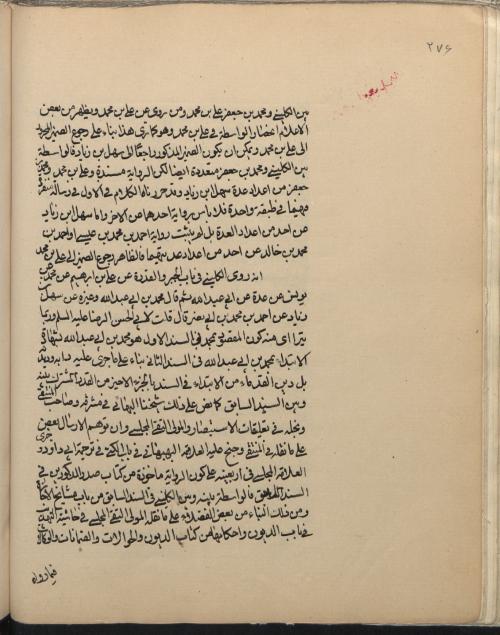 ٢٧۶
بين الكليني ومحمد بن جعفر علي بن محمد ومن روى عن علي بن محمد ويظهر من بعض
الاعلام انحصار الواسطة في علي بن محمد وهو كما ترى هذا بناء على رجوع الضمير المجرور
الى علي بن محمد ويمكن ان يكون الضمير المذكور راجعا الى سهل بن زياد فالواسطة
بين الكليني ومحمد بن جعفر متعددة ايضا لكن الرواية مسندة وعلي بن محمد ومحمد بن
جعفر من اعداد عدة سهل بن زياد وقد حررنا الكلام في الاول في رسالة منفردة
فهما في طبقة واحدة فلا باس برواية احدهما عن الاخر واما سهل بن زياد
عن احد من اعداد العدة بل لم يثبت رواية احمد بن محمد بن عيسى او احمد بن
محمد بن خالد عن احد من اعداد عدتهما فالظاهر رجوع الضمير الى علي بن محمد
انه روى الكليني في باب الجبر والقدر عن علي بن ابرهيم عن محمد بن
يونس عن عدة عن ابي عبد الله ثم قال محمد بن ابي عبد الله وغيره عن سهل
بن زياد عن احمد بن محمد بن ابي نصر قال قلت لابي الحسن الرضا عليه السلم وربما
يتراءى منه كون المقصود بمحمد في السند الاول هو محمد بن ابي عبد الله بشهادة
الابتداء بمحمد بن ابي عبد الله في السند الثاني بناء على ما جرى عليه دابه وديدنه
بل ديدن القدماء من الابتداء في السند بالجزء الاخير من القدر المشترك بينه
وبين السند السابق كما نص على ذلك شيخنا البهائي في مشرقه وصاحب المنتقى
ونجله في تعليقات الاستبصار والمولى التقي المجلسي وان توهم الارسال بعض
على ما نقله في المنتقى وجنح عليه العلامة البهبهاني في باب الكنى في ترجمة ابي داود وجرى
العلامة المجلسي في اربعينه على كون الرواية ماخوذة من كتاب صدر المذكورين في
السند اللاحق فالواسطة بينه وبين الكليني في السند السابق من باب مشايخ الاجازة
ومن ذلك البناء من بعض الفضلاء على ما نقله المولى التقي المجلسي في حاشية التهذيب
في باب الديون واحكامها من كتاب الديون والحوالات والضمانات والوكالات
فيما رواه